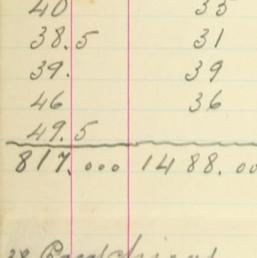 40 35
38.5 31
39. 39
46 36
49.5
817.000 1488.00